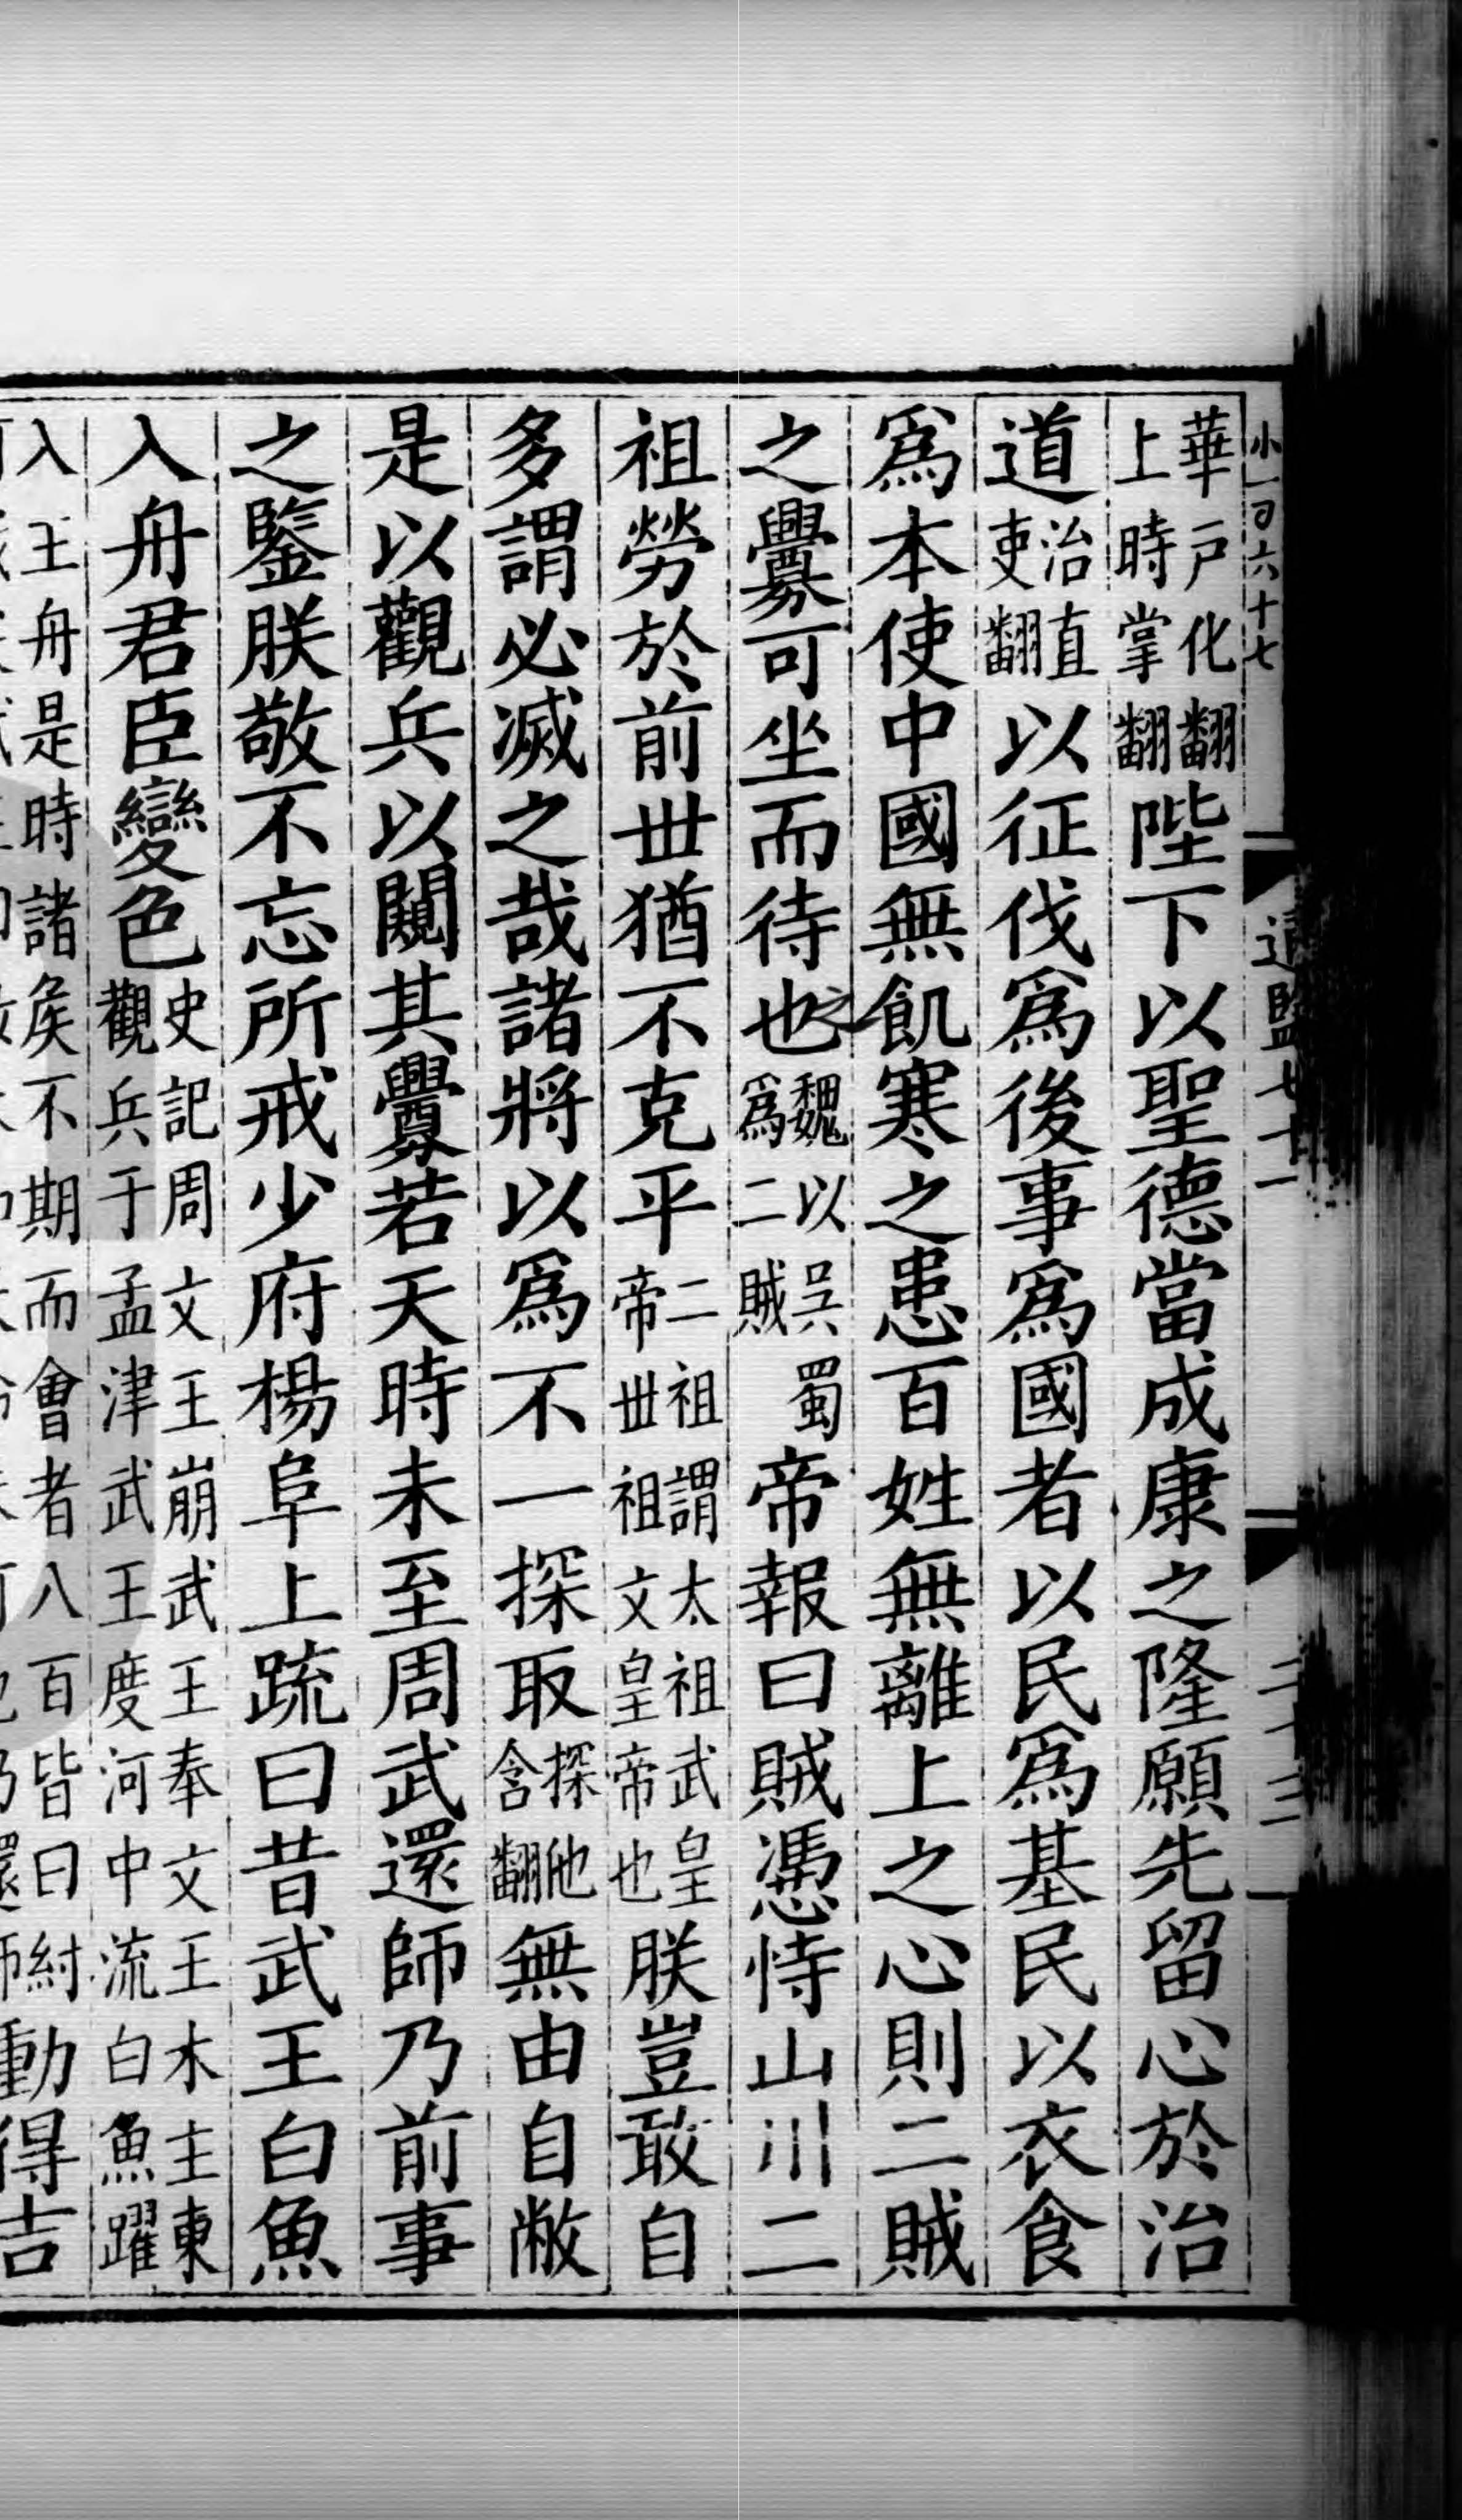 小一百六十七
通鑑七十一
二十三
華戶化翻上時掌翻陛下以聖德當成康之隆願先留心於治
道治直吏翻以征伐爲後事爲國者以民爲基民以衣食
爲本使中國無飢寒之患百姓無離上之心則二賊
之釁可坐而待也魏以吳蜀爲二賊帝報曰賊憑恃山川二
祖勞於前世猶不克平二祖謂太祖武皇帝世祖文皇帝也朕豈敢自
多謂必滅之哉諸將以爲不一探取探他含翻無由自敝
是以觀兵以闚其釁若天時未至周武還師乃前事
之鑒朕敬不忘所戒少府楊阜上疏曰昔武王白魚
入舟君臣變色史記周文王崩武王奉文王木主東觀兵于孟津武王度河中流白魚躍
入王舟是時諸侯不期而會者八百皆曰紂
動得吉